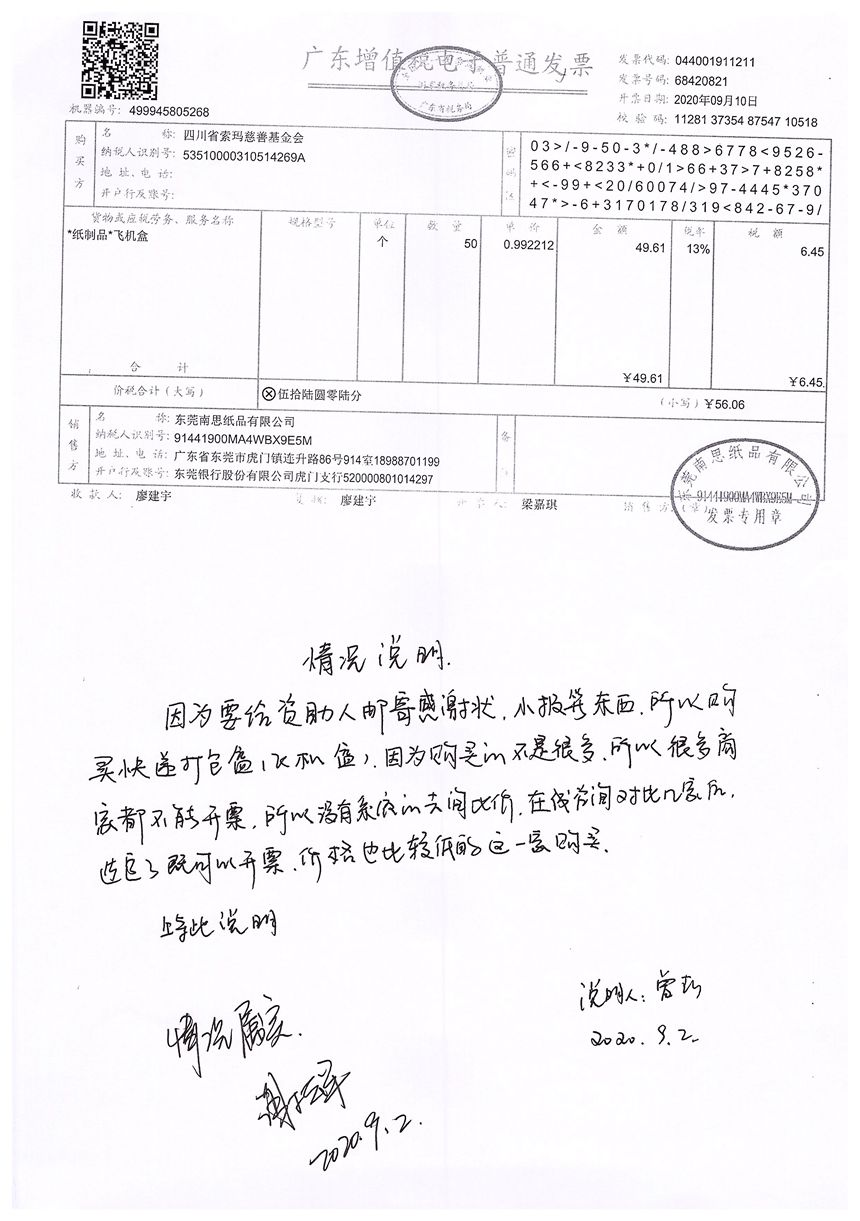 广东增值税电子普通发票
发票代码: 044001911211
发票号码: 68420821
开票日期: 2020年09月10日
校验码: 11281 37354 87547 10518
机器编号: 499945805268
广东省税务局
购买方
名称: 四川省索玛慈善基金会
纳税人识别号: 53510000310514269A
地址、电话:
开户行及账号:
密码区
03>/-9-50-3*/-488>6778<9526-
566+<8233*+0/1>66+37>7+8258*
+<-99+<20/60074/>97-4445*370
47*>-6+3170178/319<842-67-9/
货物或应税劳务、服务名称 规格型号 单位 数量 单价 金额 税率 税额
*纸制品*飞机盒 个 50 0.992212 49.61 13% 6.45
合计 ¥49.61 ¥6.45
价税合计(大写) ⊗伍拾陆圆零陆分 (小写)¥56.06
销售方
名称: 东莞南思纸品有限公司
纳税人识别号: 91441900MA4WBX9E5M
地址、电话: 广东省东莞市虎门镇连升路86号914室18988701199
开户行及账号: 东莞银行股份有限公司虎门支行520000801014297
备
收款人: 廖建宇 复核: 廖建宇 开票人: 梁嘉琪 销售方:(章)
东莞南思纸品有限公司
91441900MA4WBX9E5M
发票专用章
情况说明.
因为要给资助人邮寄感谢状,小报等东西,所以购
买快递打包盒(飞机盒),因为购买的不是很多,所以很多商
家都不能开票,所以没有系统的去问比价,在线咨询对比几家后,
选了既可以开票,价格也比较低的这一家购买.
特此说明
说明人:曾
2020.9.2
情况属实.
2020.9.2.